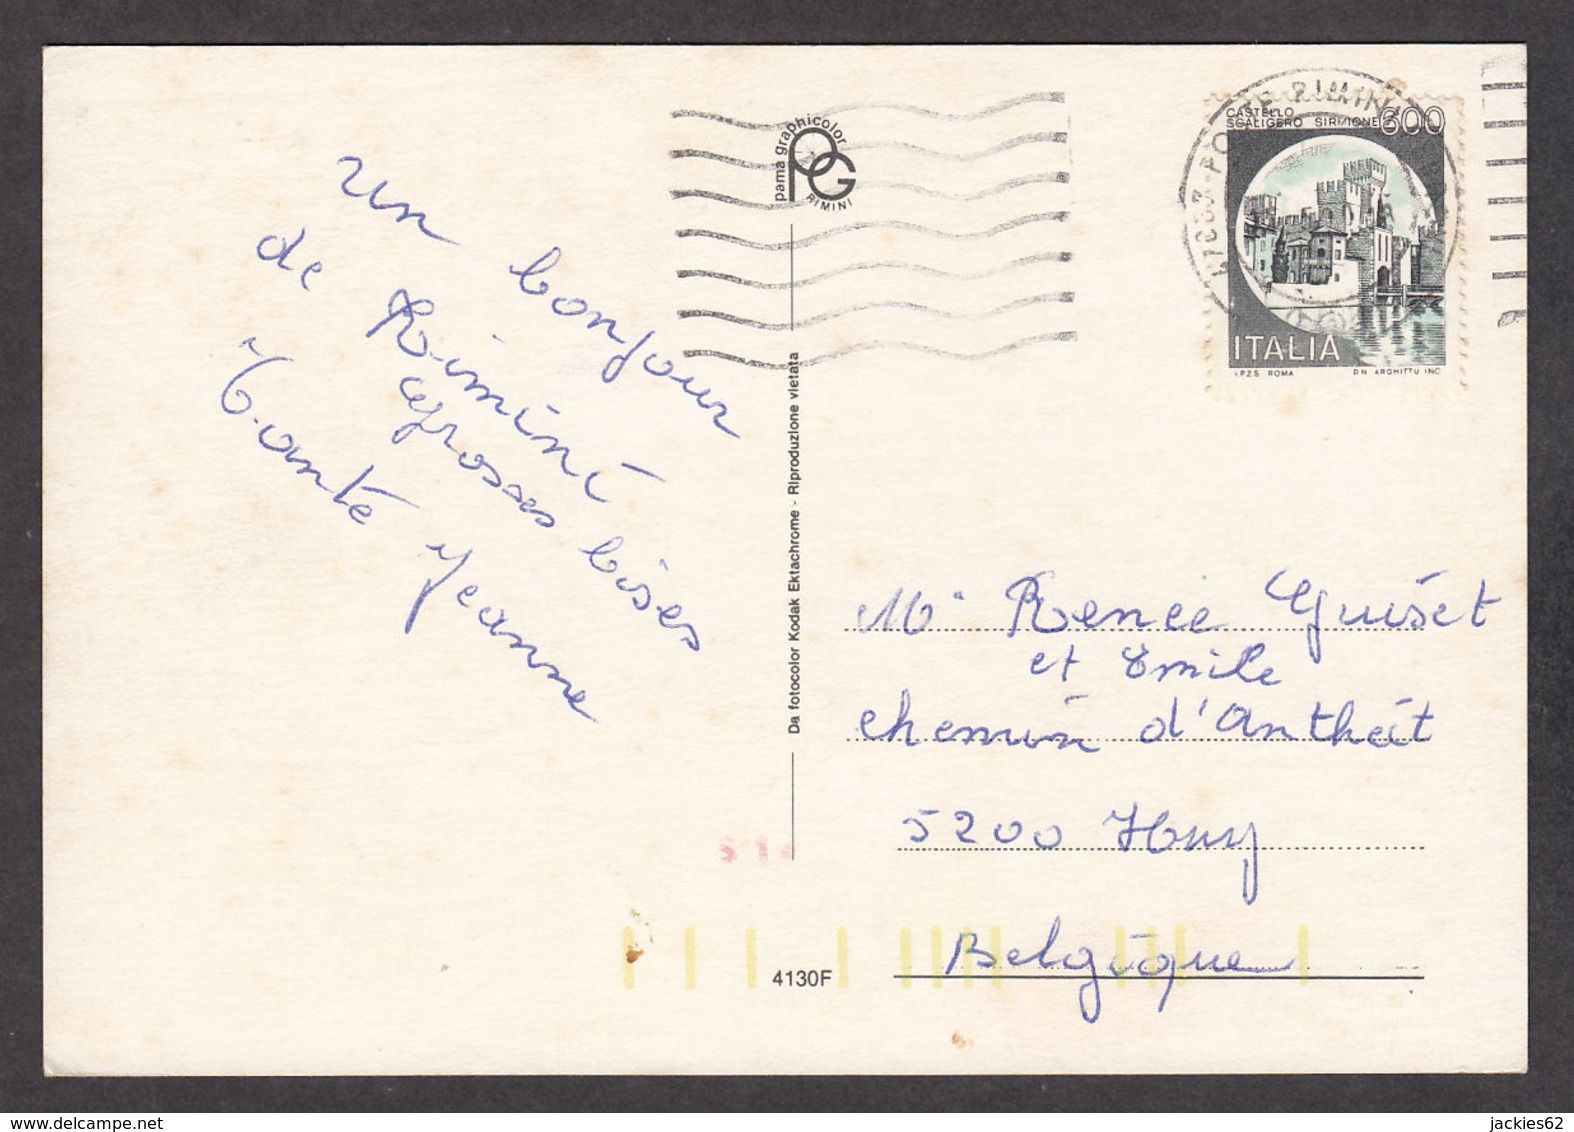 un bonjour
de Rimini
Grosses bises
Tante Jeanne
pama graphicolor
PG
RIMINI
Da fotocolor Kodak Ektachrome - Riproduzione vietata
4130F
POSTE RIMINI
CASTELLO
SCALIGERO SIRMIONE
600
ITALIA
I.P.Z.S. ROMA
P.N. ARGHITTU INC.
Mr Renée Guiset
et Emile
chemin d'Antheit
5200 Huy
Belgique
delcampe.net
jackies62